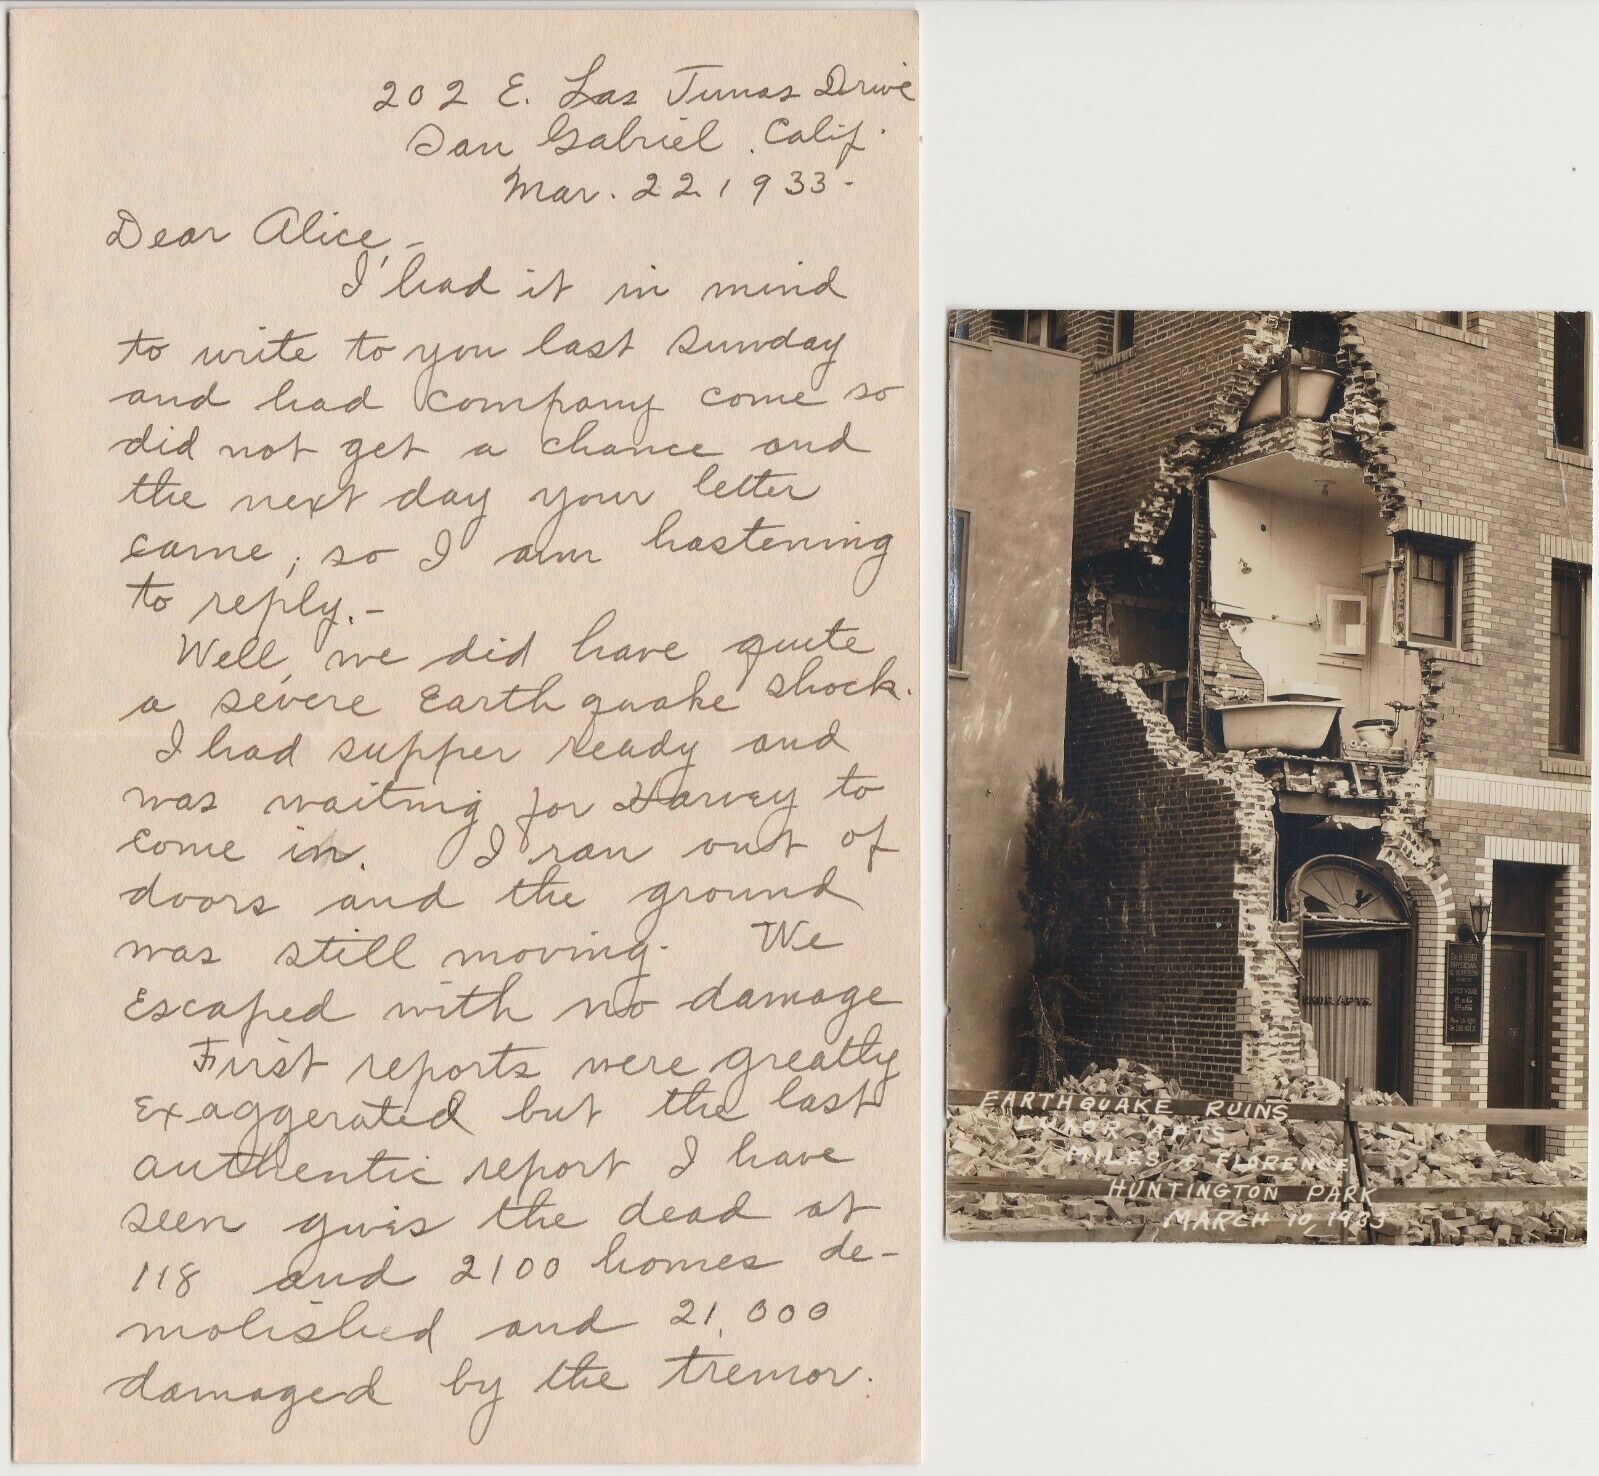 202 E. Las Tunas Drive
San Gabriel, Calif.
Mar. 22, 1933-
Dear Alice,-
I had it in mind
to write to you last Sunday
and had company come so
did not get a chance and
the next day your letter
came, so I am hastening
to reply.-
Well, we did have quite
a severe Earth quake shock.
I had supper ready and
was waiting for Harvey to
come in. I ran out of
doors and the ground
was still moving. We
Escaped with no damage
First reports were greatly
Exaggerated but the last
authentic report I have
seen gives the dead at
118 and 2100 homes de-
molished and 21,000
damaged by the tremor.
PHYSICIAN
& SURGEON
OFFICE HOURS
APTS.
EARTHQUAKE RUINS
LUXOR APTS
MILES & FLORENCE
HUNTINGTON PARK
MARCH 10, 1933